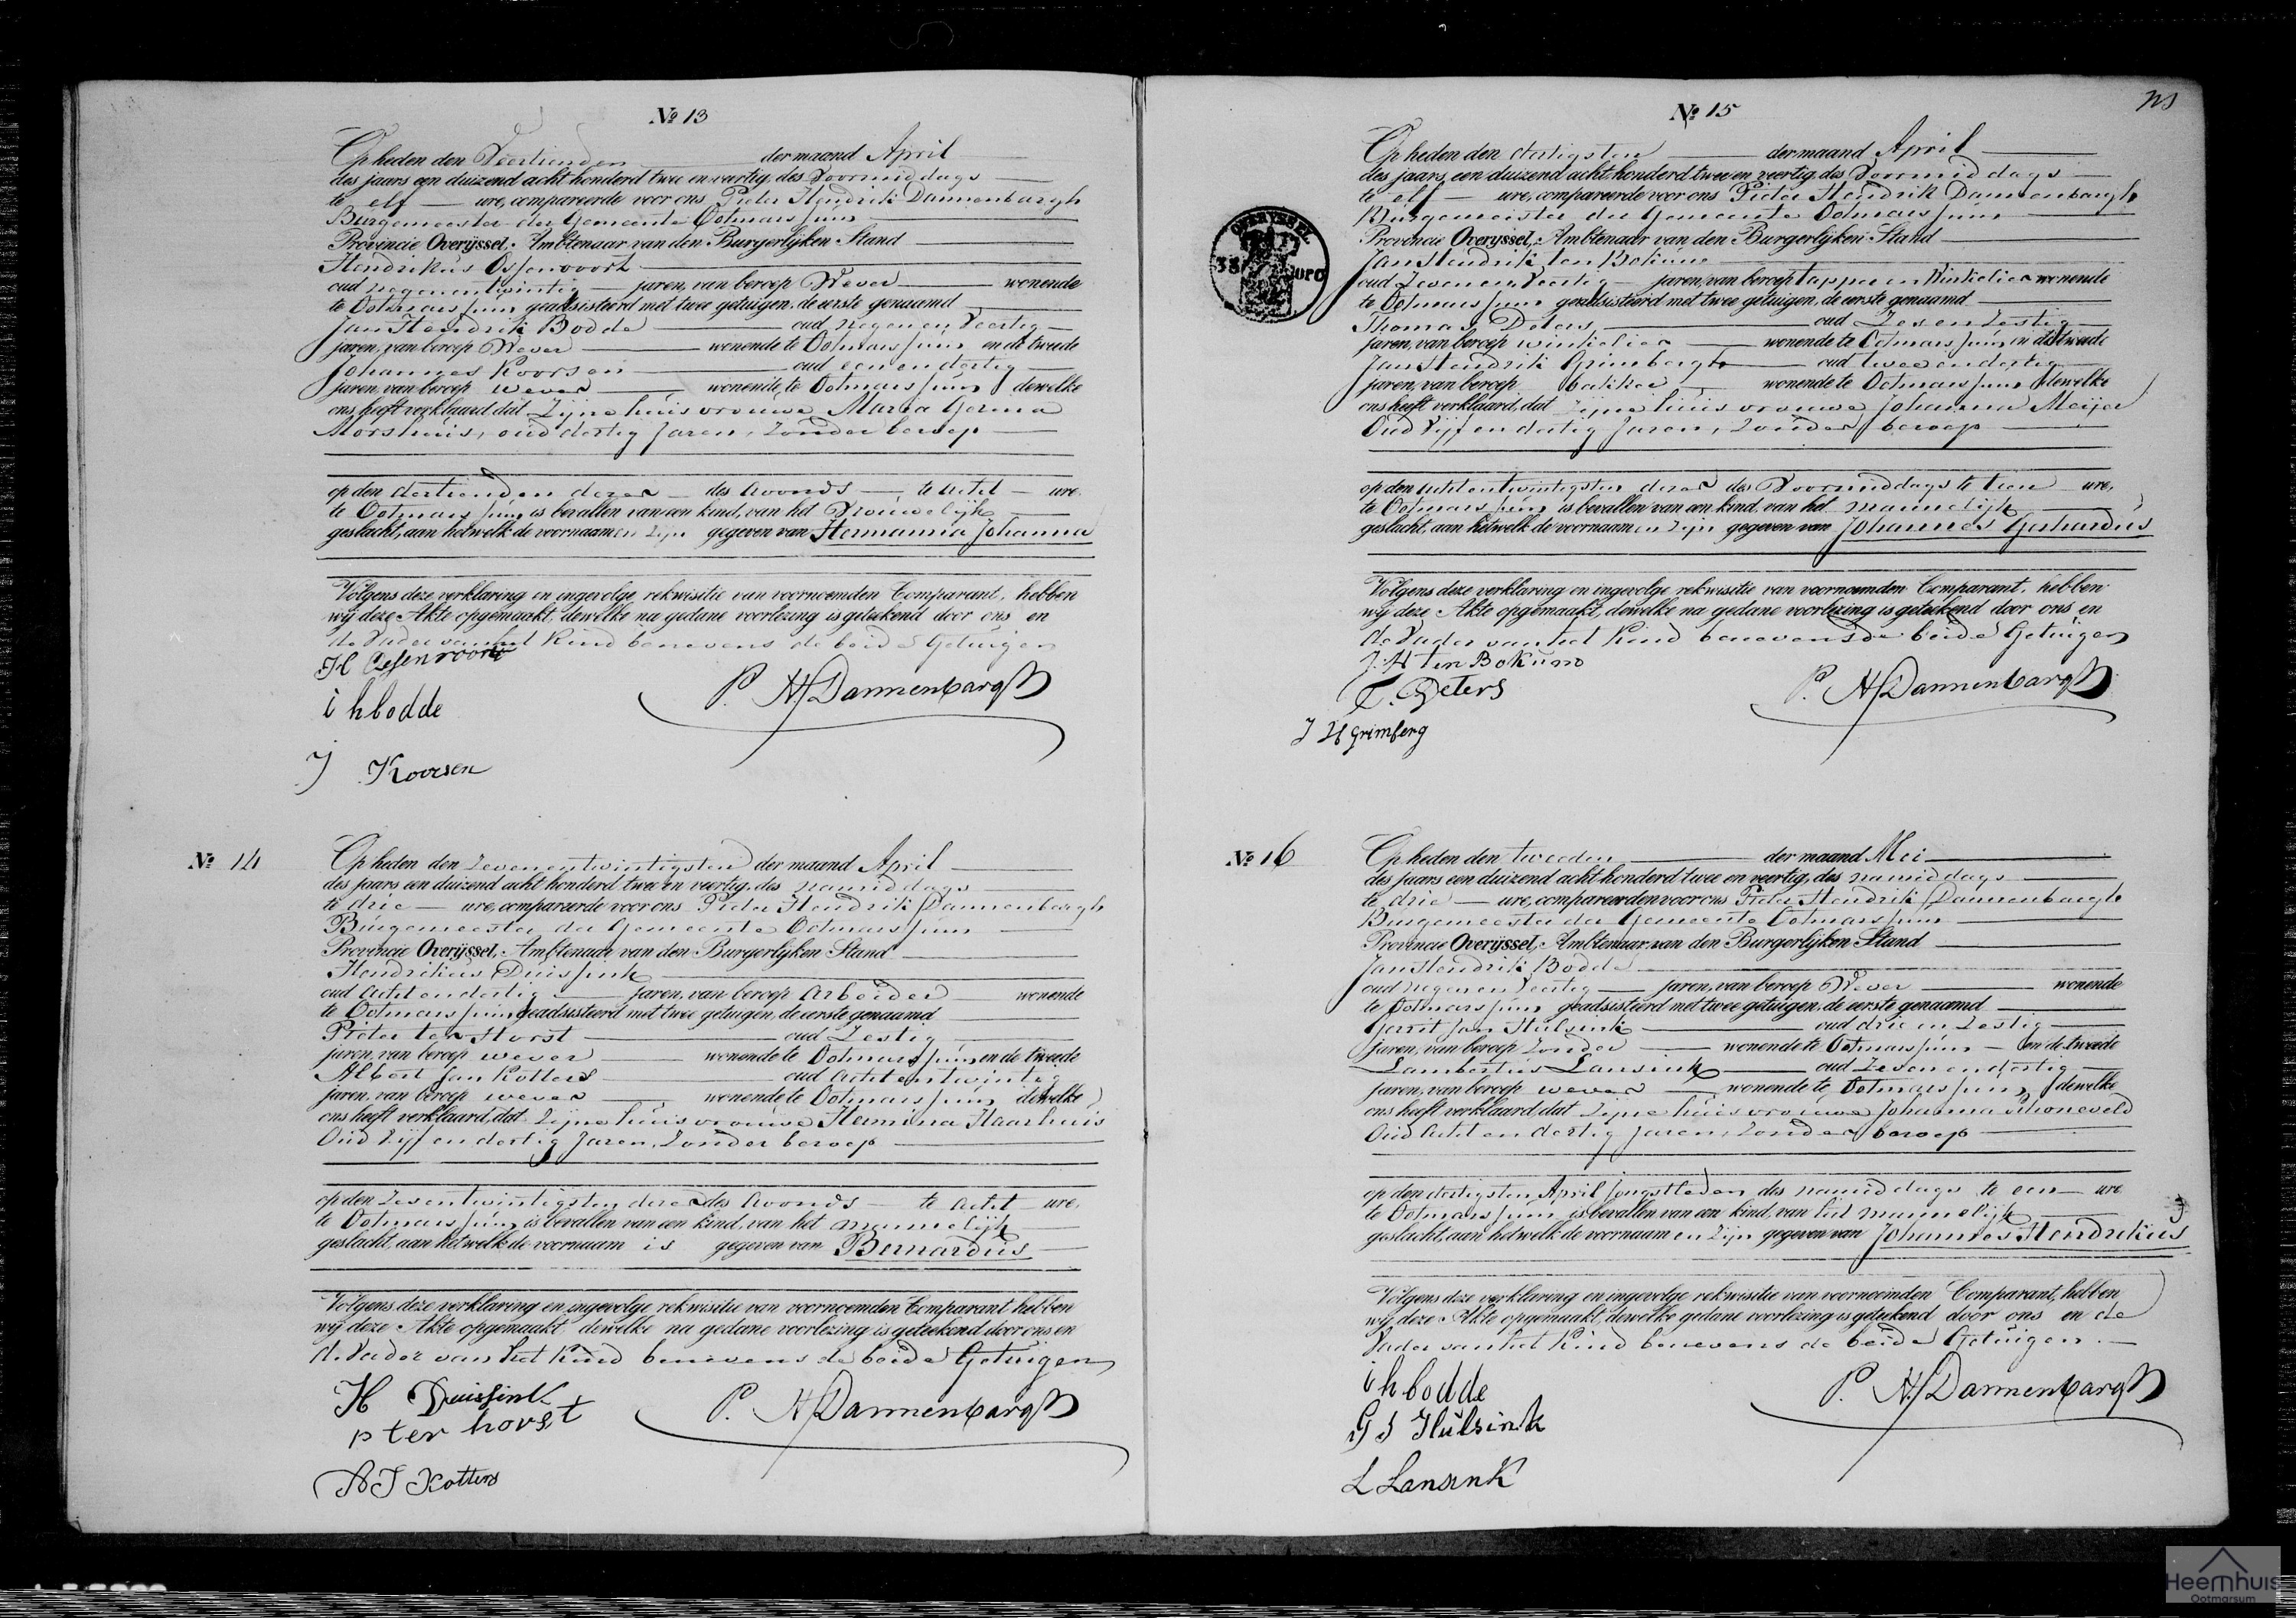 № 13
Op heden den Veertienden der maand April
des jaars een duizend acht honderd twee en veertig, des Voormiddags
te elf ure, compareerde voor ons Pieter Hendrik Dannenbargh
Burgemeester der Gemeente Ootmarssum
Provincie Overijssel, Ambtenaar van den Burgerlijken Stand
Hendrikus Ossenvoort
oud negenentwintig jaren, van beroep Wever wonende
te Ootmarssum geadsisteerd met twee getuigen, de eerste genaamd
Jan Hendrik Bodde oud negen en Veertig
jaren, van beroep Wever wonende te Ootmarssum en de tweede
Johannes Koorsen oud een en dertig
jaren, van beroep wever wonende te Ootmarssum dewelke
ons heeft verklaard dat Zijne huisvrouwe Maria
Morshuis, oud dertig Jaren, Zonder beroep
op den dertienden dezer des Avonds te acht ure,
te Ootmarssum is bevallen van een kind, van het Vrouwelijk
geslacht, aan hetwelk de voornaamen zijn gegeven van Hermanna Johanna
Volgens deze verklaring en ingevolge rekwisitie van voornoemden Comparant, hebben
wij deze Akte opgemaakt, dewelke na gedane voorlezing is geteekend door ons en
de Vader van het Kind benevens de beide Getuigen
H Ossenvoort
i h bodde
P. H. Dannenbargh
J Koorsen
№ 14
Op heden den Zevenentwintigsten der maand April
des jaars een duizend acht honderd twee en veertig, des namiddags
te drie ure, compareerde voor ons Pieter Hendrik Dannenbargh
Burgemeester der Gemeente Ootmarssum
Provincie Overijssel, Ambtenaar van den Burgerlijken Stand
Hendrikus Duissink
oud acht en dertig jaren, van beroep Arbeider wonende
te Ootmarssum geadsisteerd met twee getuigen, de eerste genaamd
Pieter ter Horst oud Zestig
jaren, van beroep wever wonende te Ootmarssum en de tweede
Albert Jan Kotters oud acht entwintig
jaren, van beroep wever wonende te Ootmarssum dewelke
ons heeft verklaard, dat Zijne huisvrouwe Hermina Haarhuis
Oud Vijf en dertig Jaren, Zonder beroep
op den Zeventwintigsten dezer des Avonds te acht ure,
te Ootmarssum is bevallen van een kind, van het mannelijk
geslacht, aan hetwelk de voornaam is gegeven van Bernardus
Volgens deze verklaring en ingevolge rekwisitie van voornoemden Comparant hebben
wij deze Akte opgemaakt dewelke na gedane voorlezing is geteekend door ons en
de Vader van het Kind benevens de beide Getuigen
H Duissink
p ter horst
P. H. Dannenbargh
A J Kotters
№ 15
Op heden den dertigsten der maand April
des jaars een duizend acht honderd twee en veertig, des Voormiddags
te elf ure, compareerde voor ons Pieter Hendrik Dannenbargh
Burgemeester der Gemeente Ootmarssum
Provincie Overijssel, Ambtenaar van den Burgerlijken Stand
OVERYSSEL
Jan Hendrik ten Bokum
oud Zevenen Veertig jaren, van beroep tapper en Winkelier wonende
te Ootmarssum geadsisteerd met twee getuigen, de eerste genaamd
Thomas Deters oud Zesen Zestig
jaren, van beroep winkelier wonende te Ootmarssum en de tweede
Jan Hendrik Grimbergh oud twee en dertig
jaren, van beroep bakker wonende te Ootmarssum dewelke
ons heeft verklaard, dat zijne huisvrouwe Johanna Meijer
Oud Vijf en dertig Jaren, Zonder beroep
op den achtentwintigsten dezer des Voormiddags te tien ure,
te Ootmarssum is bevallen van een kind, van het mannelijk
geslacht, aan hetwelk de voornaamen zijn gegeven van Johannes Gerhardus
Volgens deze verklaring en ingevolge rekwisitie van voornoemden Comparant, hebben
wij deze Akte opgemaakt, dewelke na gedane voorlezing is geteekend door ons en
de Vader van het Kind benevens de beide Getuigen
J. H ten Bokum
T. Deters
P. H. Dannenbargh
J H Grimberg
№ 16
Op heden den tweeden der maand Mei
des jaars een duizend acht honderd twee en veertig, des namiddags
te drie ure, compareerden voor ons Pieter Hendrik Dannenbargh
Burgemeester der Gemeente Ootmarssum
Provincie Overijssel, Ambtenaar van den Burgerlijken Stand
Jan Hendrik Bodde
oud negen en Veertig jaren, van beroep Wever wonende
te Ootmarssum geadsisteerd met twee getuigen, de eerste genaamd
Gerrit Jan Hulsink oud drie en Zestig
jaren, van beroep Zonder wonende te Ootmarssum en de tweede
Lambertus Lansink oud Zeven en dertig
jaren, van beroep wever wonende te Ootmarssum dewelke
ons heeft verklaard dat zijne huisvrouwe Johanna Schoneveld
Oud Acht en dertig Jaren, Zonder beroep
op den dertigsten April Jongstleden des namiddags te een ure
te Ootmarssum is bevallen van een kind, van het mannelijk
geslacht, aan hetwelk de voornaamen zijn gegeven van Johannes Hendrikus
Volgens deze verklaring en ingevolge rekwisitie van voornoemden Comparant, hebben
wij deze Akte opgemaakt, dewelke gedane voorlezing is geteekend door ons en de
Vader van het Kind benevens de beide Getuigen.
i h bodde
P. H. Dannenbargh
G J Hulsink
L Lansink
Heemhuis
Ootmarsum